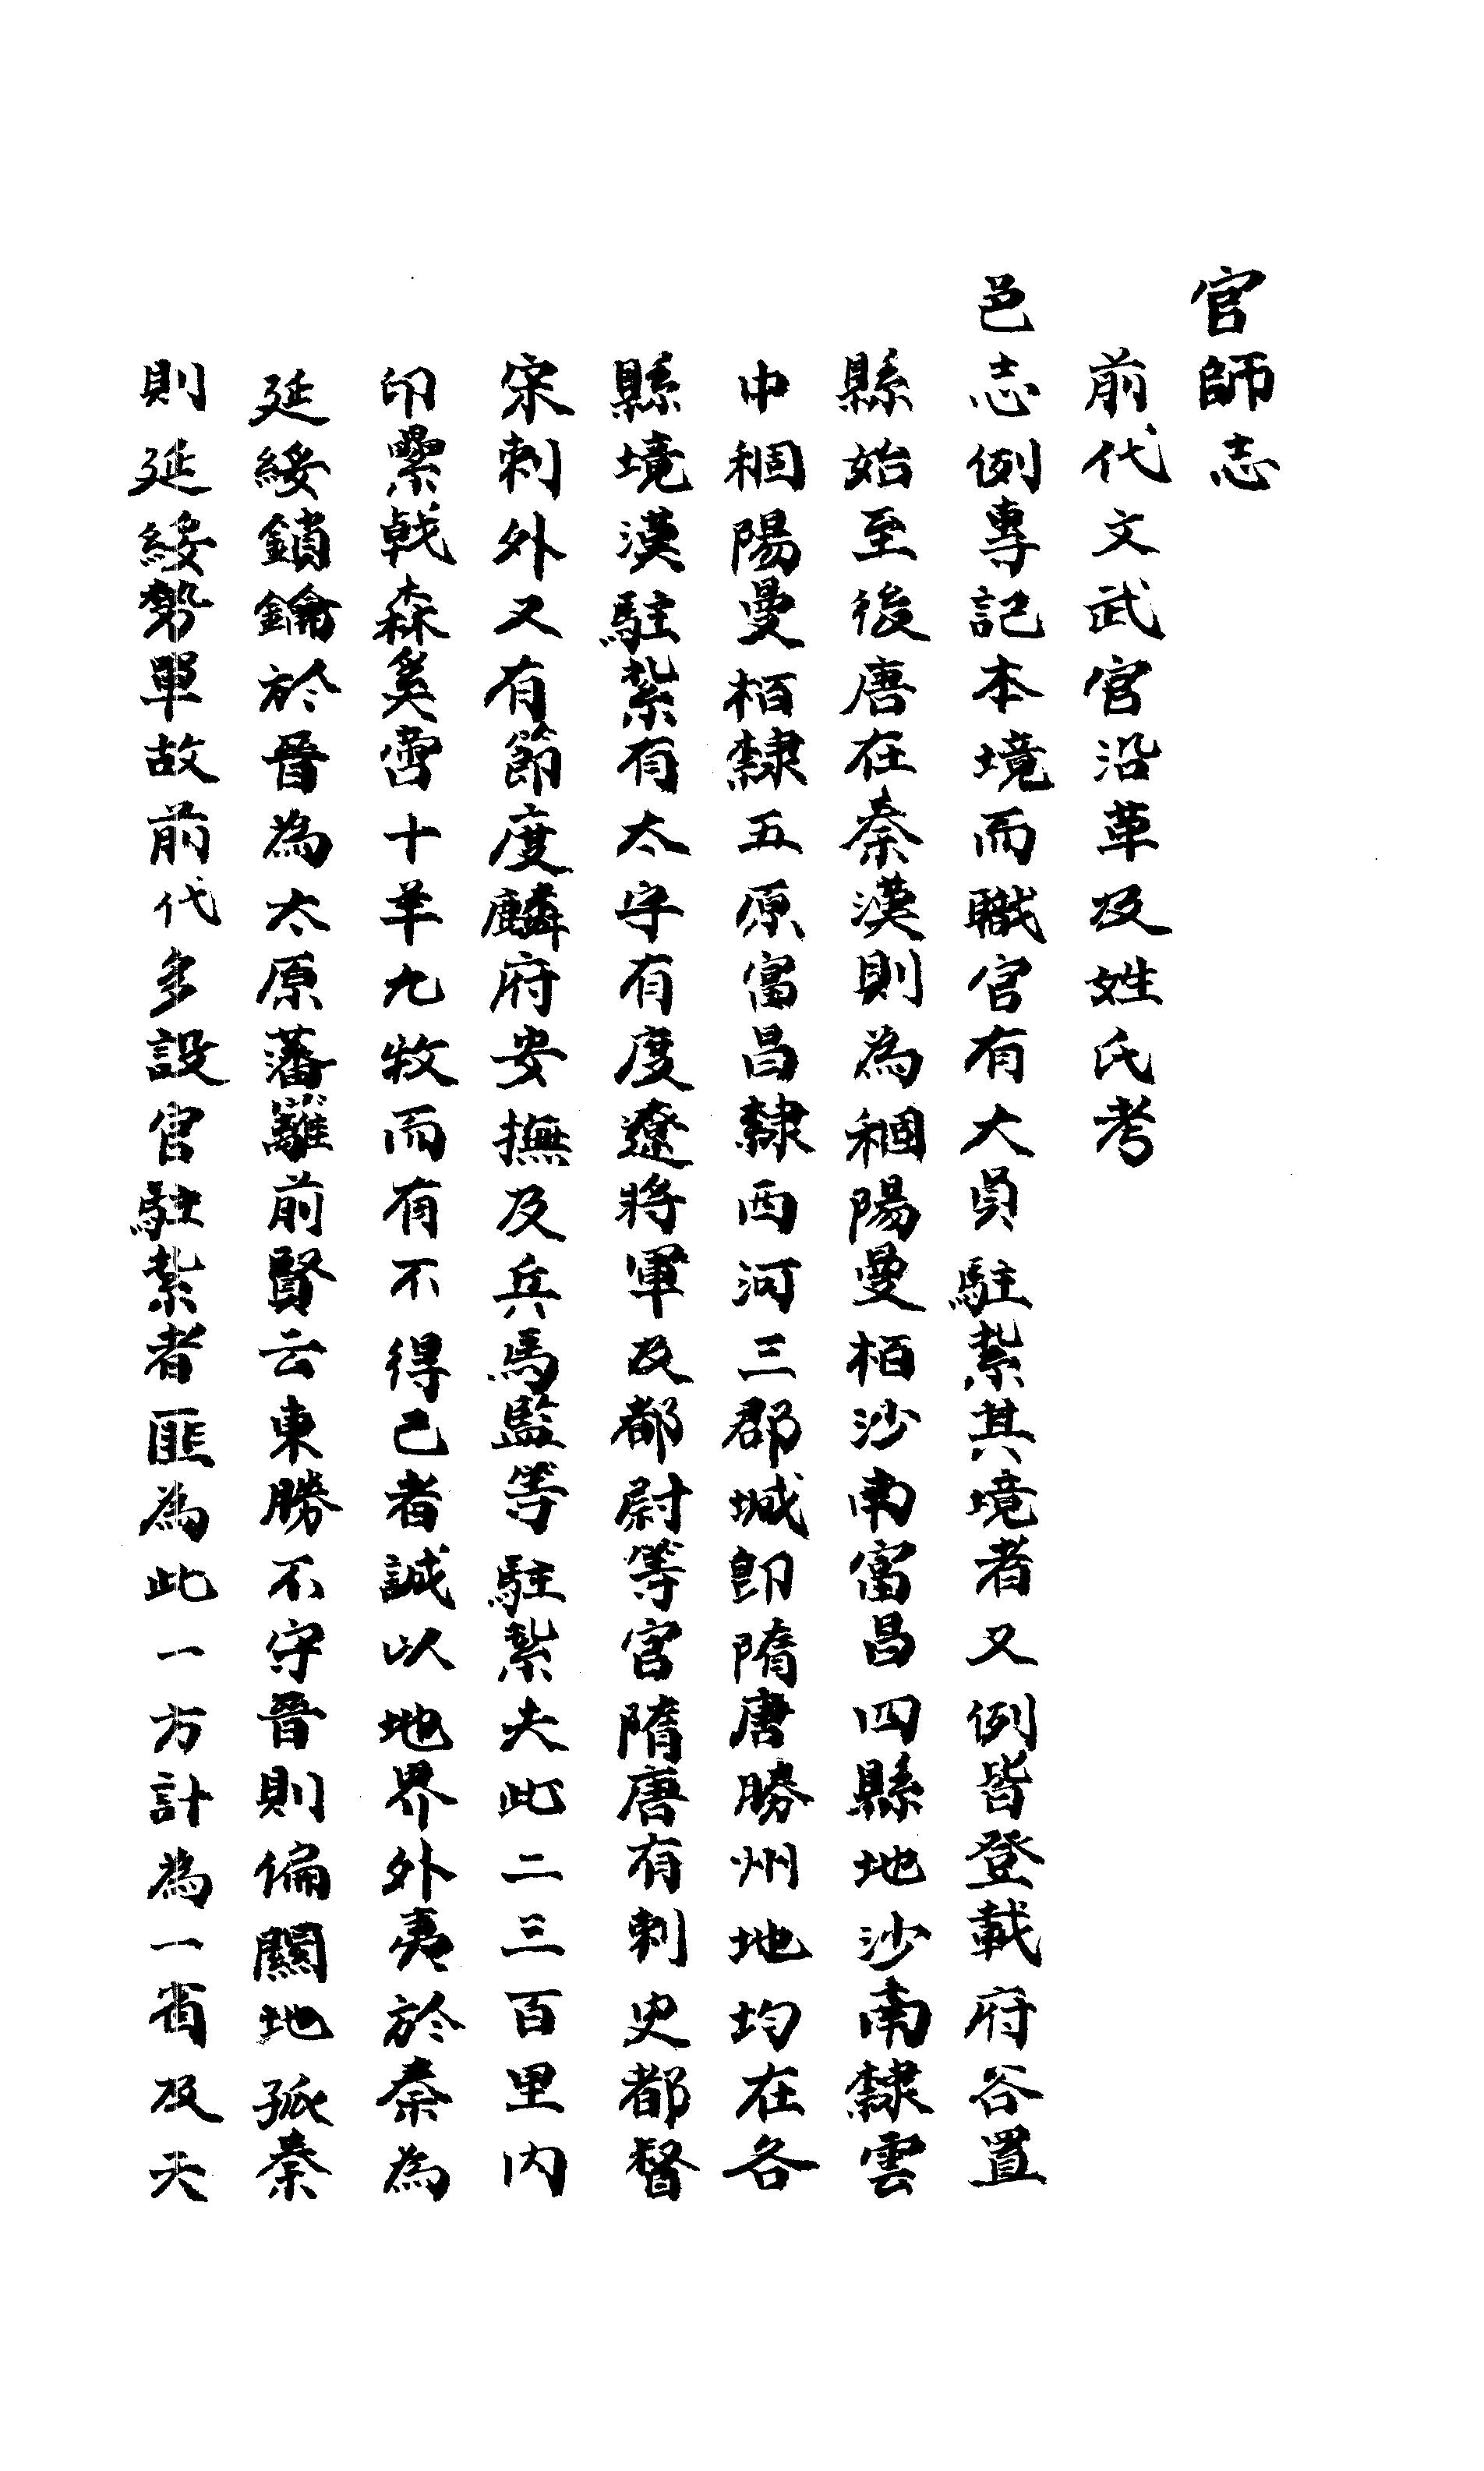 官師志
前代文武官沿革及姓氏考
邑志例專記本境而職官有大員駐紮其境者又例皆登載府谷置
縣始至後唐在秦漢則為稒陽曼栢沙南富昌四縣地沙南隸雲
中稒陽曼栢隸五原富昌隸西河三郡城卽隋唐勝州地均在各
縣境漢駐紮有太守有度遼將軍及都尉等官隋唐有刺史都督
宋刺外又有節度麟府安撫及兵馬監等駐紮夫此二三百里內
印纍戟森奚啻十羊九牧而有不得已者誠以地界外夷於秦為
延綏鎖鑰於晉為太原藩籬前賢云東勝不守晉則偏關地孤秦
則延綏勢單故前代多設官駐紮者匪為此一方計為一省及天